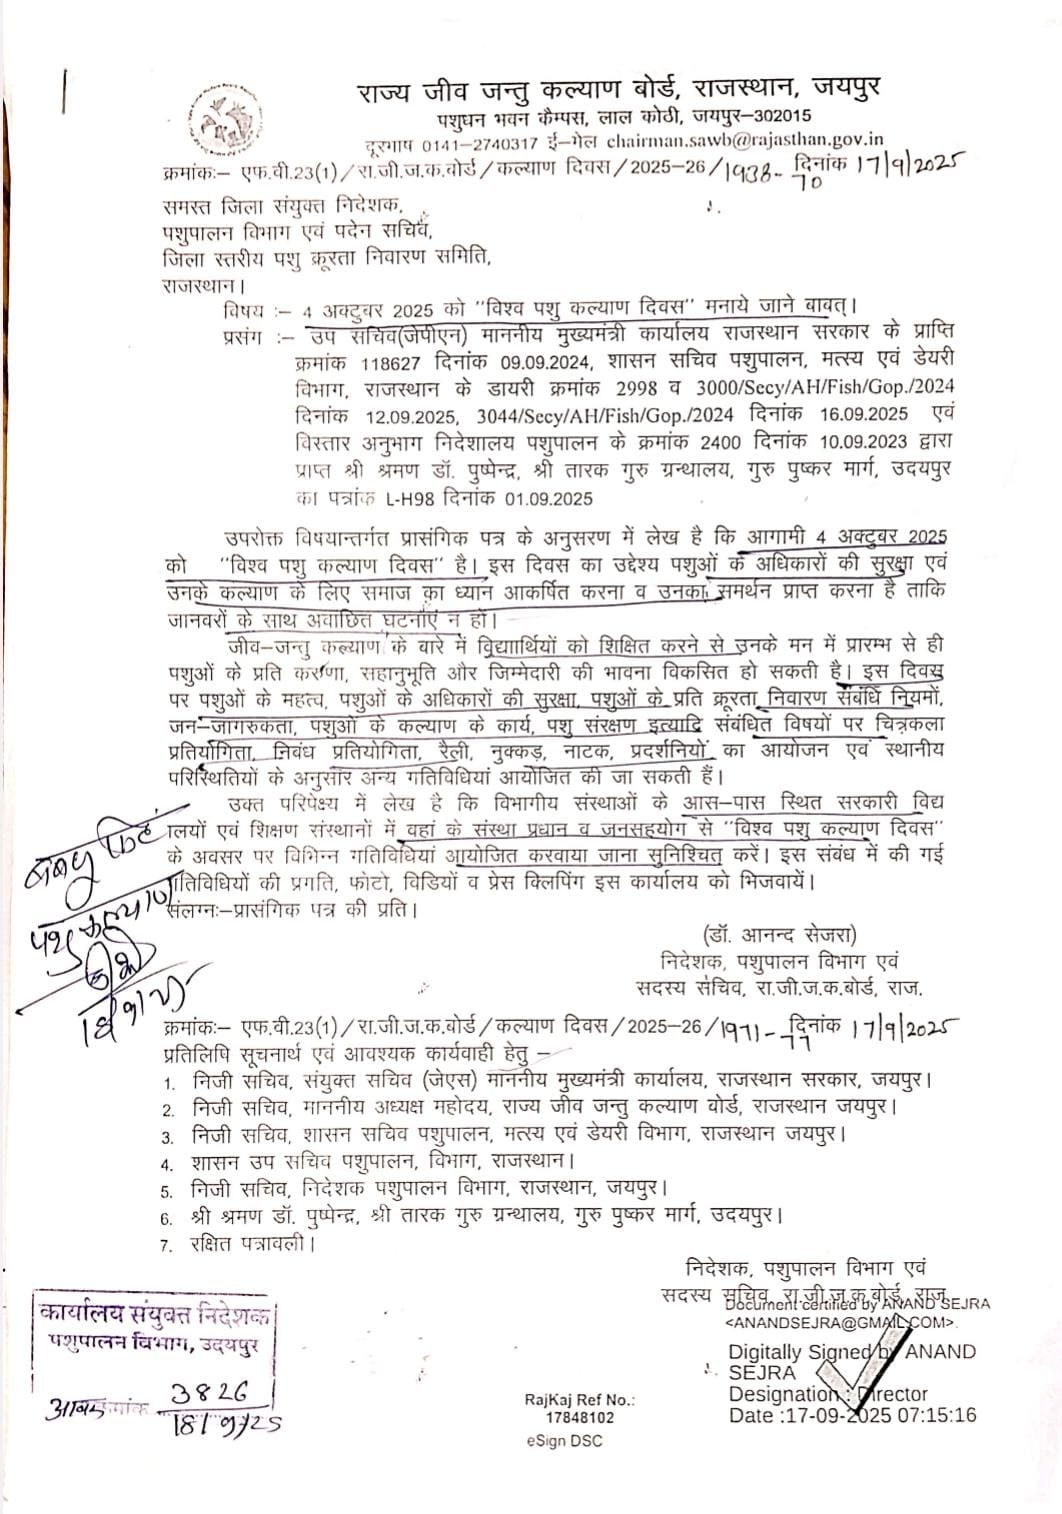 राज्य जीव जन्तु कल्याण बोर्ड, राजस्थान, जयपुर
पशुधन भवन कैम्पस, लाल कोठी, जयपुर–302015
दूरभाष 0141–2740317 ई–मेल chairman.sawb@rajasthan.gov.in
क्रमांकः– एफ.वी.23(1)/रा.जी.ज.क.बोर्ड/कल्याण दिवस/2025–26/1938- 70 दिनांक 17/9/2025
समस्त जिला संयुक्त निदेशक,
पशुपालन विभाग एवं पदेन सचिव,
जिला स्तरीय पशु क्रूरता निवारण समिति,
राजस्थान।
विषय :– 4 अक्टुबर 2025 को "विश्व पशु कल्याण दिवस" मनाये जाने बाबत्।
प्रसंग :– उप सचिव(जेपीएन) माननीय मुख्यमंत्री कार्यालय राजस्थान सरकार के प्राप्ति
क्रमांक 118627 दिनांक 09.09.2024, शासन सचिव पशुपालन, मत्स्य एवं डेयरी
विभाग, राजस्थान के डायरी क्रमांक 2998 व 3000/Secy/AH/Fish/Gop./2024
दिनांक 12.09.2025, 3044/Secy/AH/Fish/Gop./2024 दिनांक 16.09.2025 एवं
विस्तार अनुभाग निदेशालय पशुपालन के क्रमांक 2400 दिनांक 10.09.2023 द्वारा
प्राप्त श्री श्रमण डॉ. पुष्पेन्द्र, श्री तारक गुरु ग्रन्थालय, गुरु पुष्कर मार्ग, उदयपुर
का पत्रांक L-H98 दिनांक 01.09.2025
उपरोक्त विषयान्तर्गत प्रासंगिक पत्र के अनुसरण में लेख है कि आगामी 4 अक्टुबर 2025
को "विश्व पशु कल्याण दिवस" है। इस दिवस का उद्देश्य पशुओं के अधिकारों की सुरक्षा एवं
उनके कल्याण के लिए समाज का ध्यान आकर्षित करना व उनका समर्थन प्राप्त करना है ताकि
जानवरों के साथ अवांछित घटनाएं न हों।
जीव–जन्तु कल्याण के बारे में विद्यार्थियों को शिक्षित करने से उनके मन में प्रारम्भ से ही
पशुओं के प्रति करुणा, सहानुभूति और जिम्मेदारी की भावना विकसित हो सकती है। इस दिवस
पर पशुओं के महत्व, पशुओं के अधिकारों की सुरक्षा, पशुओं के प्रति क्रूरता निवारण संबंधि नियमों,
जन–जागरुकता, पशुओं के कल्याण के कार्य, पशु संरक्षण इत्यादि संबंधित विषयों पर चित्रकला
प्रतियोगिता, निबंध प्रतियोगिता, रैली, नुक्कड़, नाटक, प्रदर्शनियों का आयोजन एवं स्थानीय
परिस्थितियों के अनुसार अन्य गतिविधियां आयोजित की जा सकती हैं।
उक्त परिपेक्ष्य में लेख है कि विभागीय संस्थाओं के आस–पास स्थित सरकारी विद्य
ालयों एवं शिक्षण संस्थानों में वहां के संस्था प्रधान व जनसहयोग से "विश्व पशु कल्याण दिवस"
के अवसर पर विभिन्न गतिविधियां आयोजित करवाया जाना सुनिश्चित् करें। इस संबंध में की गई
गतिविधियों की प्रगति, फोटो, विडियों व प्रेस क्लिपिंग इस कार्यालय को भिजवायें।
संलग्नः–प्रासंगिक पत्र की प्रति।
पशु कल्याण
(डॉ. आनन्द सेजरा)
निदेशक, पशुपालन विभाग एवं
सदस्य सचिव, रा.जी.ज.क.बोर्ड, राज.
क्रमांकः– एफ.वी.23(1)/रा.जी.ज.क.बोर्ड/कल्याण दिवस/2025–26/1971- 77 दिनांक 17/9/2025
प्रतिलिपि सूचनार्थ एवं आवश्यक कार्यवाही हेतु –
1. निजी सचिव, संयुक्त सचिव (जेएस) माननीय मुख्यमंत्री कार्यालय, राजस्थान सरकार, जयपुर।
2. निजी सचिव, माननीय अध्यक्ष महोदय, राज्य जीव जन्तु कल्याण बोर्ड, राजस्थान जयपुर।
3. निजी सचिव, शासन सचिव पशुपालन, मत्स्य एवं डेयरी विभाग, राजस्थान जयपुर।
4. शासन उप सचिव पशुपालन, विभाग, राजस्थान।
5. निजी सचिव, निदेशक पशुपालन विभाग, राजस्थान, जयपुर।
6. श्री श्रमण डॉ. पुष्पेन्द्र, श्री तारक गुरु ग्रन्थालय, गुरु पुष्कर मार्ग, उदयपुर।
7. रक्षित पत्रावली।
निदेशक, पशुपालन विभाग एवं
सदस्य सचिव, रा.जी.ज.क.बोर्ड, राज.
Document certified by ANAND SEJRA
<ANANDSEJRA@GMAIL.COM>.
Digitally Signed by ANAND
SEJRA
Designation : Director
Date :17-09-2025 07:15:16
RajKaj Ref No.:
17848102
eSign DSC
कार्यालय संयुक्त निदेशक
पशुपालन विभाग, उदयपुर
आवक क्रमांक 3826
18/9/25